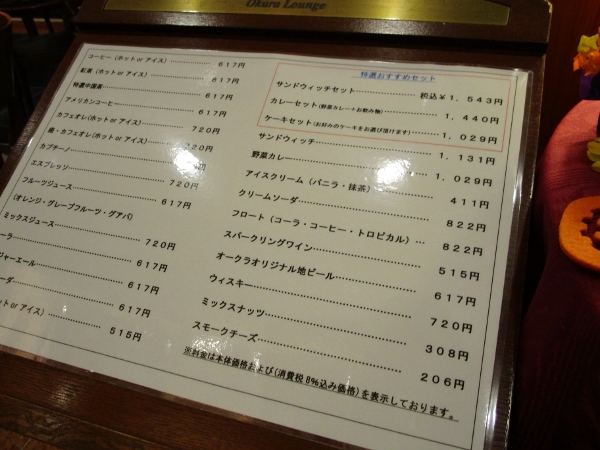 Okura Lounge
コーヒー(ホット or アイス)……… 617円
紅茶(ホット or アイス)……… 617円
特選中国茶……… 617円
アメリカンコーヒー……… 617円
カフェオレ(ホット or アイス)……… 720円
・カフェオレ(ホット or アイス)……… 720円
カプチーノ……… 円
エスプレッソ……… 720円
フルーツジュース……… 617円
(オレンジ・グレープフルーツ・グアバ)
ミックスジュース……… 720円
ーラ……… 617円
ジャーエール……… 617円
ーダ……… 617円
ット or アイス)……… 515円
特選おすすめセット
サンドウィッチセット……… 税込¥1,543円
カレーセット(野菜カレー+お飲み物)……… 1,440円
ケーキセット(お好みのケーキをお選び頂けます)……… 1,029円
サンドウィッチ……… 1,131円
野菜カレー……… 1,029円
アイスクリーム(バニラ・抹茶)……… 411円
クリームソーダ……… 822円
フロート(コーラ・コーヒー・トロピカル)… 822円
スパークリングワイン……… 515円
オークラオリジナル地ビール……… 617円
ウィスキー……… 720円
ミックスナッツ……… 308円
スモークチーズ……… 206円
※料金は本体価格および(消費税8%込み価格)を表示しております。